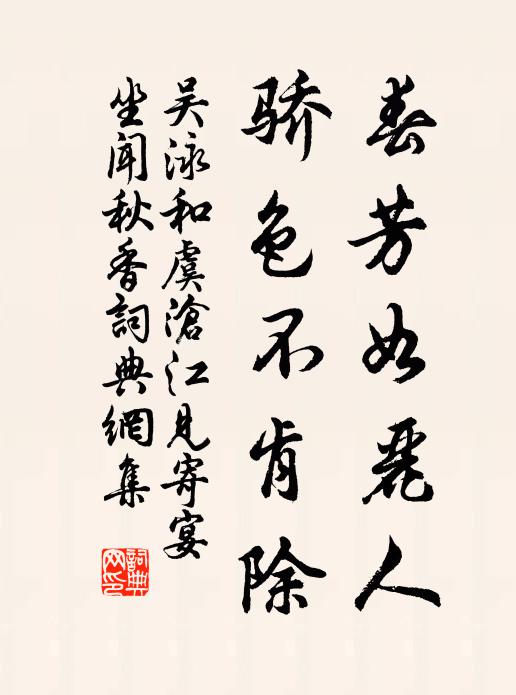 春芳如丽人
骄色不肯除
吴泳和虞滄江見寄宴
坐闻秋香詞典網集
詞典网印